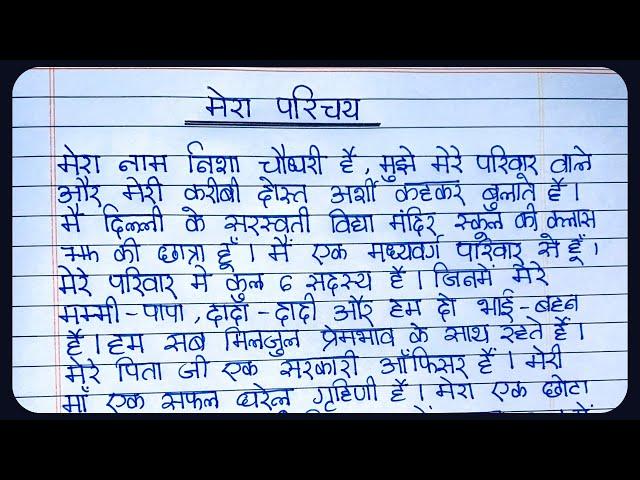 मेरा परिचय
मेरा नाम निशा चौधरी है, मुझे मेरे परिवार वाले
और मेरी करीबी दोस्त अर्शी कहकर बुलाते हैं।
मैं दिल्ली के सरस्वती विद्या मंदिर स्कूल की क्लास
7th की छात्रा हूँ। मैं एक मध्यवर्ग परिवार से हूँ।
मेरे परिवार में कुल 6 सदस्य हैं। जिनमें मेरे
मम्मी-पापा, दादा-दादी और हम दो भाई-बहन
हैं। हम सब मिलजुल प्रेमभाव के साथ रहते हैं।
मेरे पिता जी एक सरकारी ऑफिसर हैं। मेरी
माँ एक सफल घरेलू गृहिणी हैं। मेरा एक छोटा